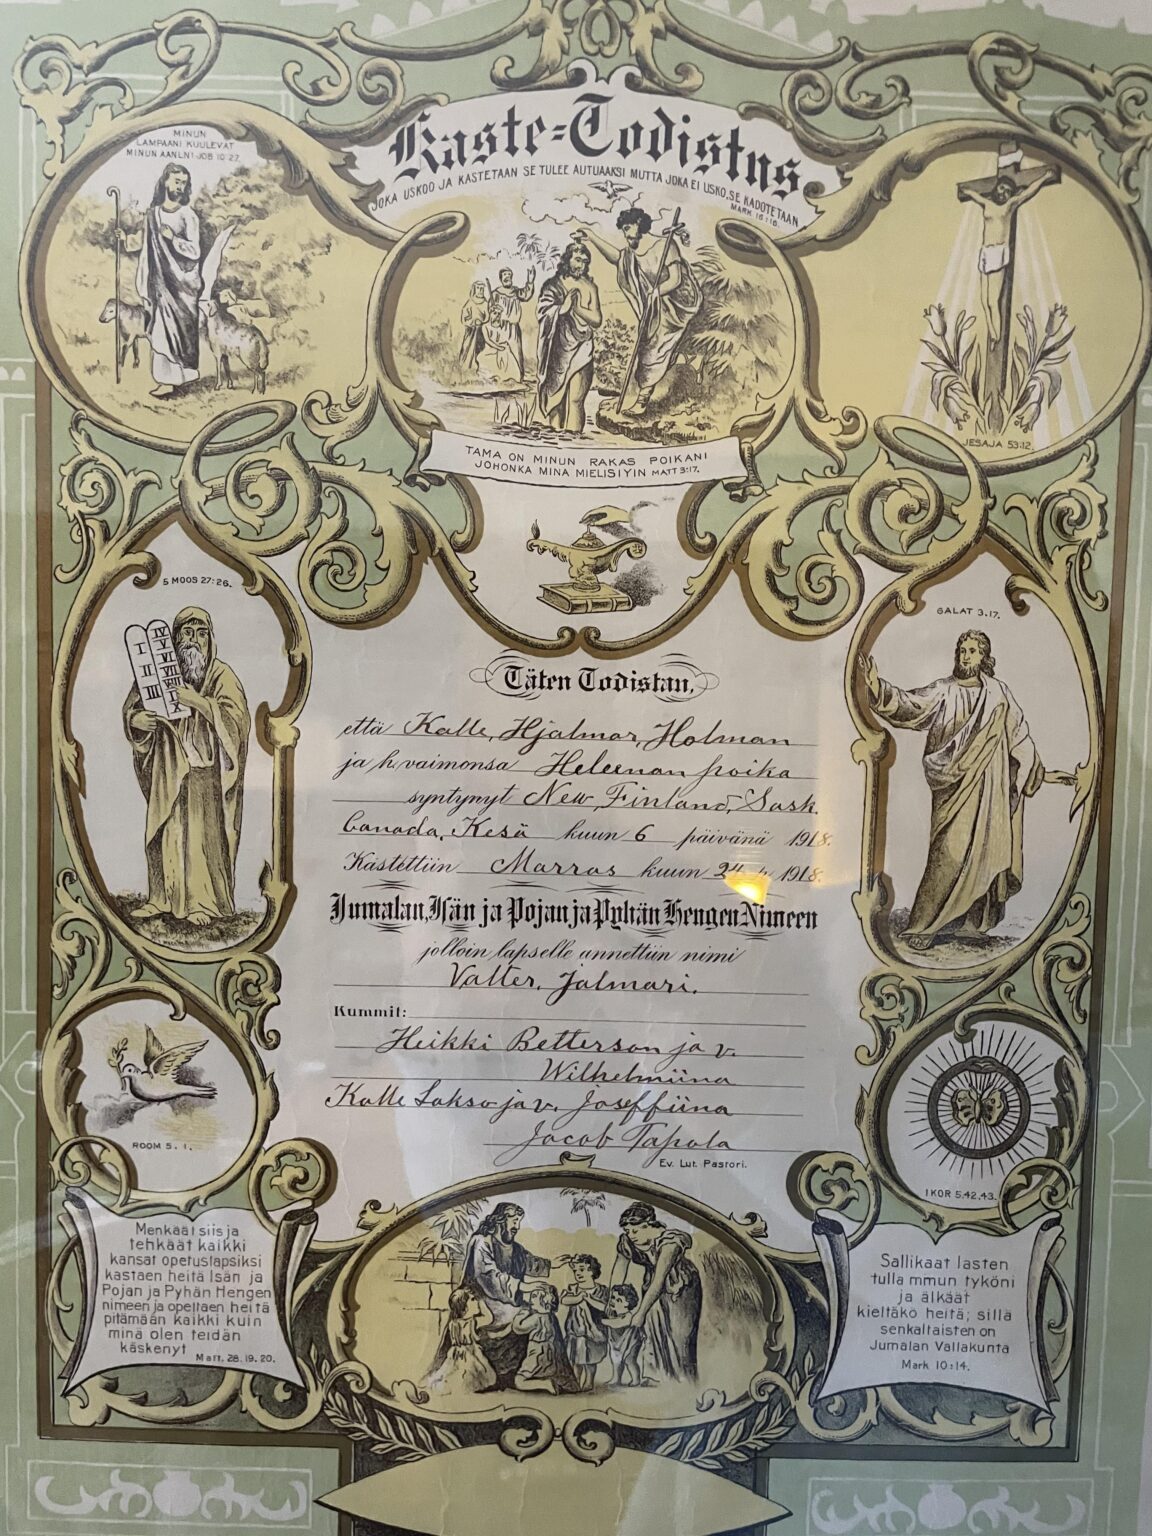 Kaste=Todistus
JOKA USKOO JA KASTETAAN SE TULEE AUTUAAKSI MUTTA JOKA EI USKO, SE KADOTETAAN
MARK 16:16.
MINUN
LAMPAANI KUULEVAT
MINUN AANLNI JOB 10 27.
JESAJA 53:12.
TAMA ON MINUN RAKAS POIKANI
JOHONKA MINA MIELISIYIN MATT 3:17.
5 MOOS 27:26.
I
II
III
IV
V
VI
VII
VIII
IX
X
GALAT 3.17.
Täten Todistan,
että Kalle, Hjalmar, Holman
ja h. vaimonsa Heleenan poika
syntynyt New, Finland, Sask.
Canada, Kesä kuun 6 päivänä 1918.
Kastettiin Marras kuun 24 p. 1918.
Jumalan, Isän ja Pojan ja Pyhän Hengen Nimeen
jolloin lapselle annettiin nimi
Valter, Jalmari.
Kummit:
Heikki Betterson ja v.
Wilhelmiina
Kalle Lakso ja v. Joseffiina
Jacob Tapola
Ev. Lut. Pastori.
ROOM 5. 1.
1 KOR 5.42,43.
Menkäät siis ja
tehkäät kaikki
kansat opetuslapsiksi
kastaen heitä Isän ja
Pojan ja Pyhän Hengen
nimeen ja opettaen heitä
pitämään kaikki kuin
minä olen teidän
käskenyt Matt. 28. 19. 20.
Sallikaat lasten
tulla mmun tyköni
ja älkäät
kieltäkö heitä; sillä
senkaltaisten on
Jumalan Vallakunta
Mark 10:14.